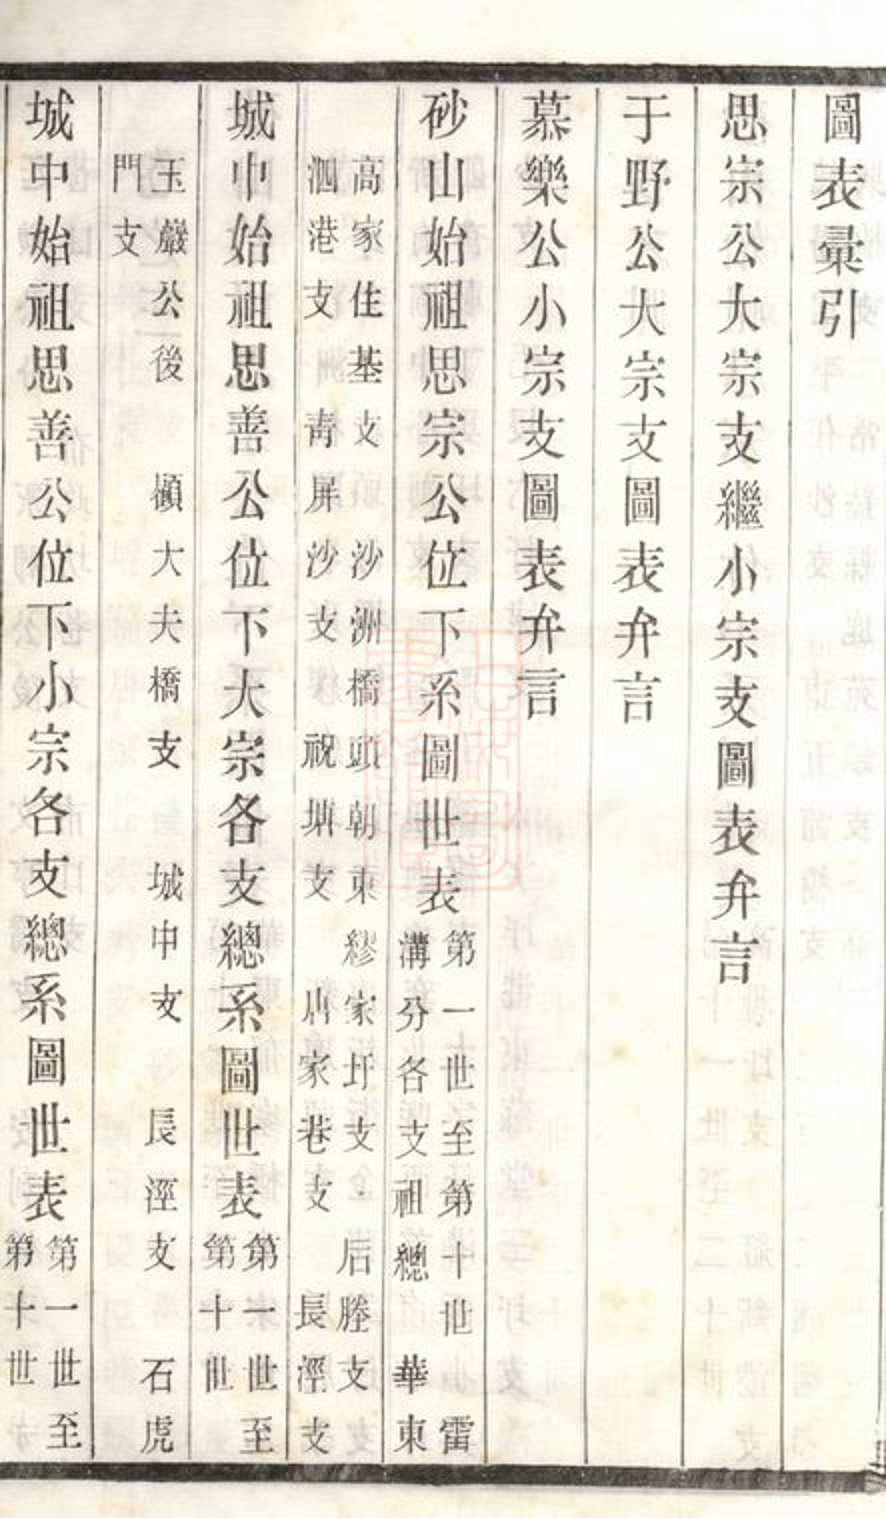 圖表彙引
思宗公大宗支繼小宗支圖表弁言
于野公大宗支圖表弁言
慕樂公小宗支圖表弁言
砂山始祖思宗公位下系圖世表
第一世至第十世 雷
溝分各支祖總 華東
高家住基支 沙洲橋頭朝東繆家圩支 后塍支
泗港支 青屏沙支 祝塘支 唐家巷支 長涇支
城中始祖思善公位下大宗各支總系圖世表
第一世至
第十世
玉巖公後 大夫橋支 城中支 長涇支 石虎
門支
城中始祖思善公位下小宗各支總系圖世表
第一世至
第十世